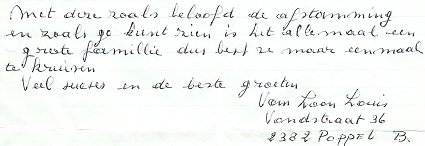 Met deze zoals beloofd de afstamming
en zoals ge kunt zien is het allemaal een
grote famillie dus best ze maar eenmaal
te kruisen
Veel sucses en de beste groeten
Van Loon Louis
Vondstraat 36
2382 POPPEL B.